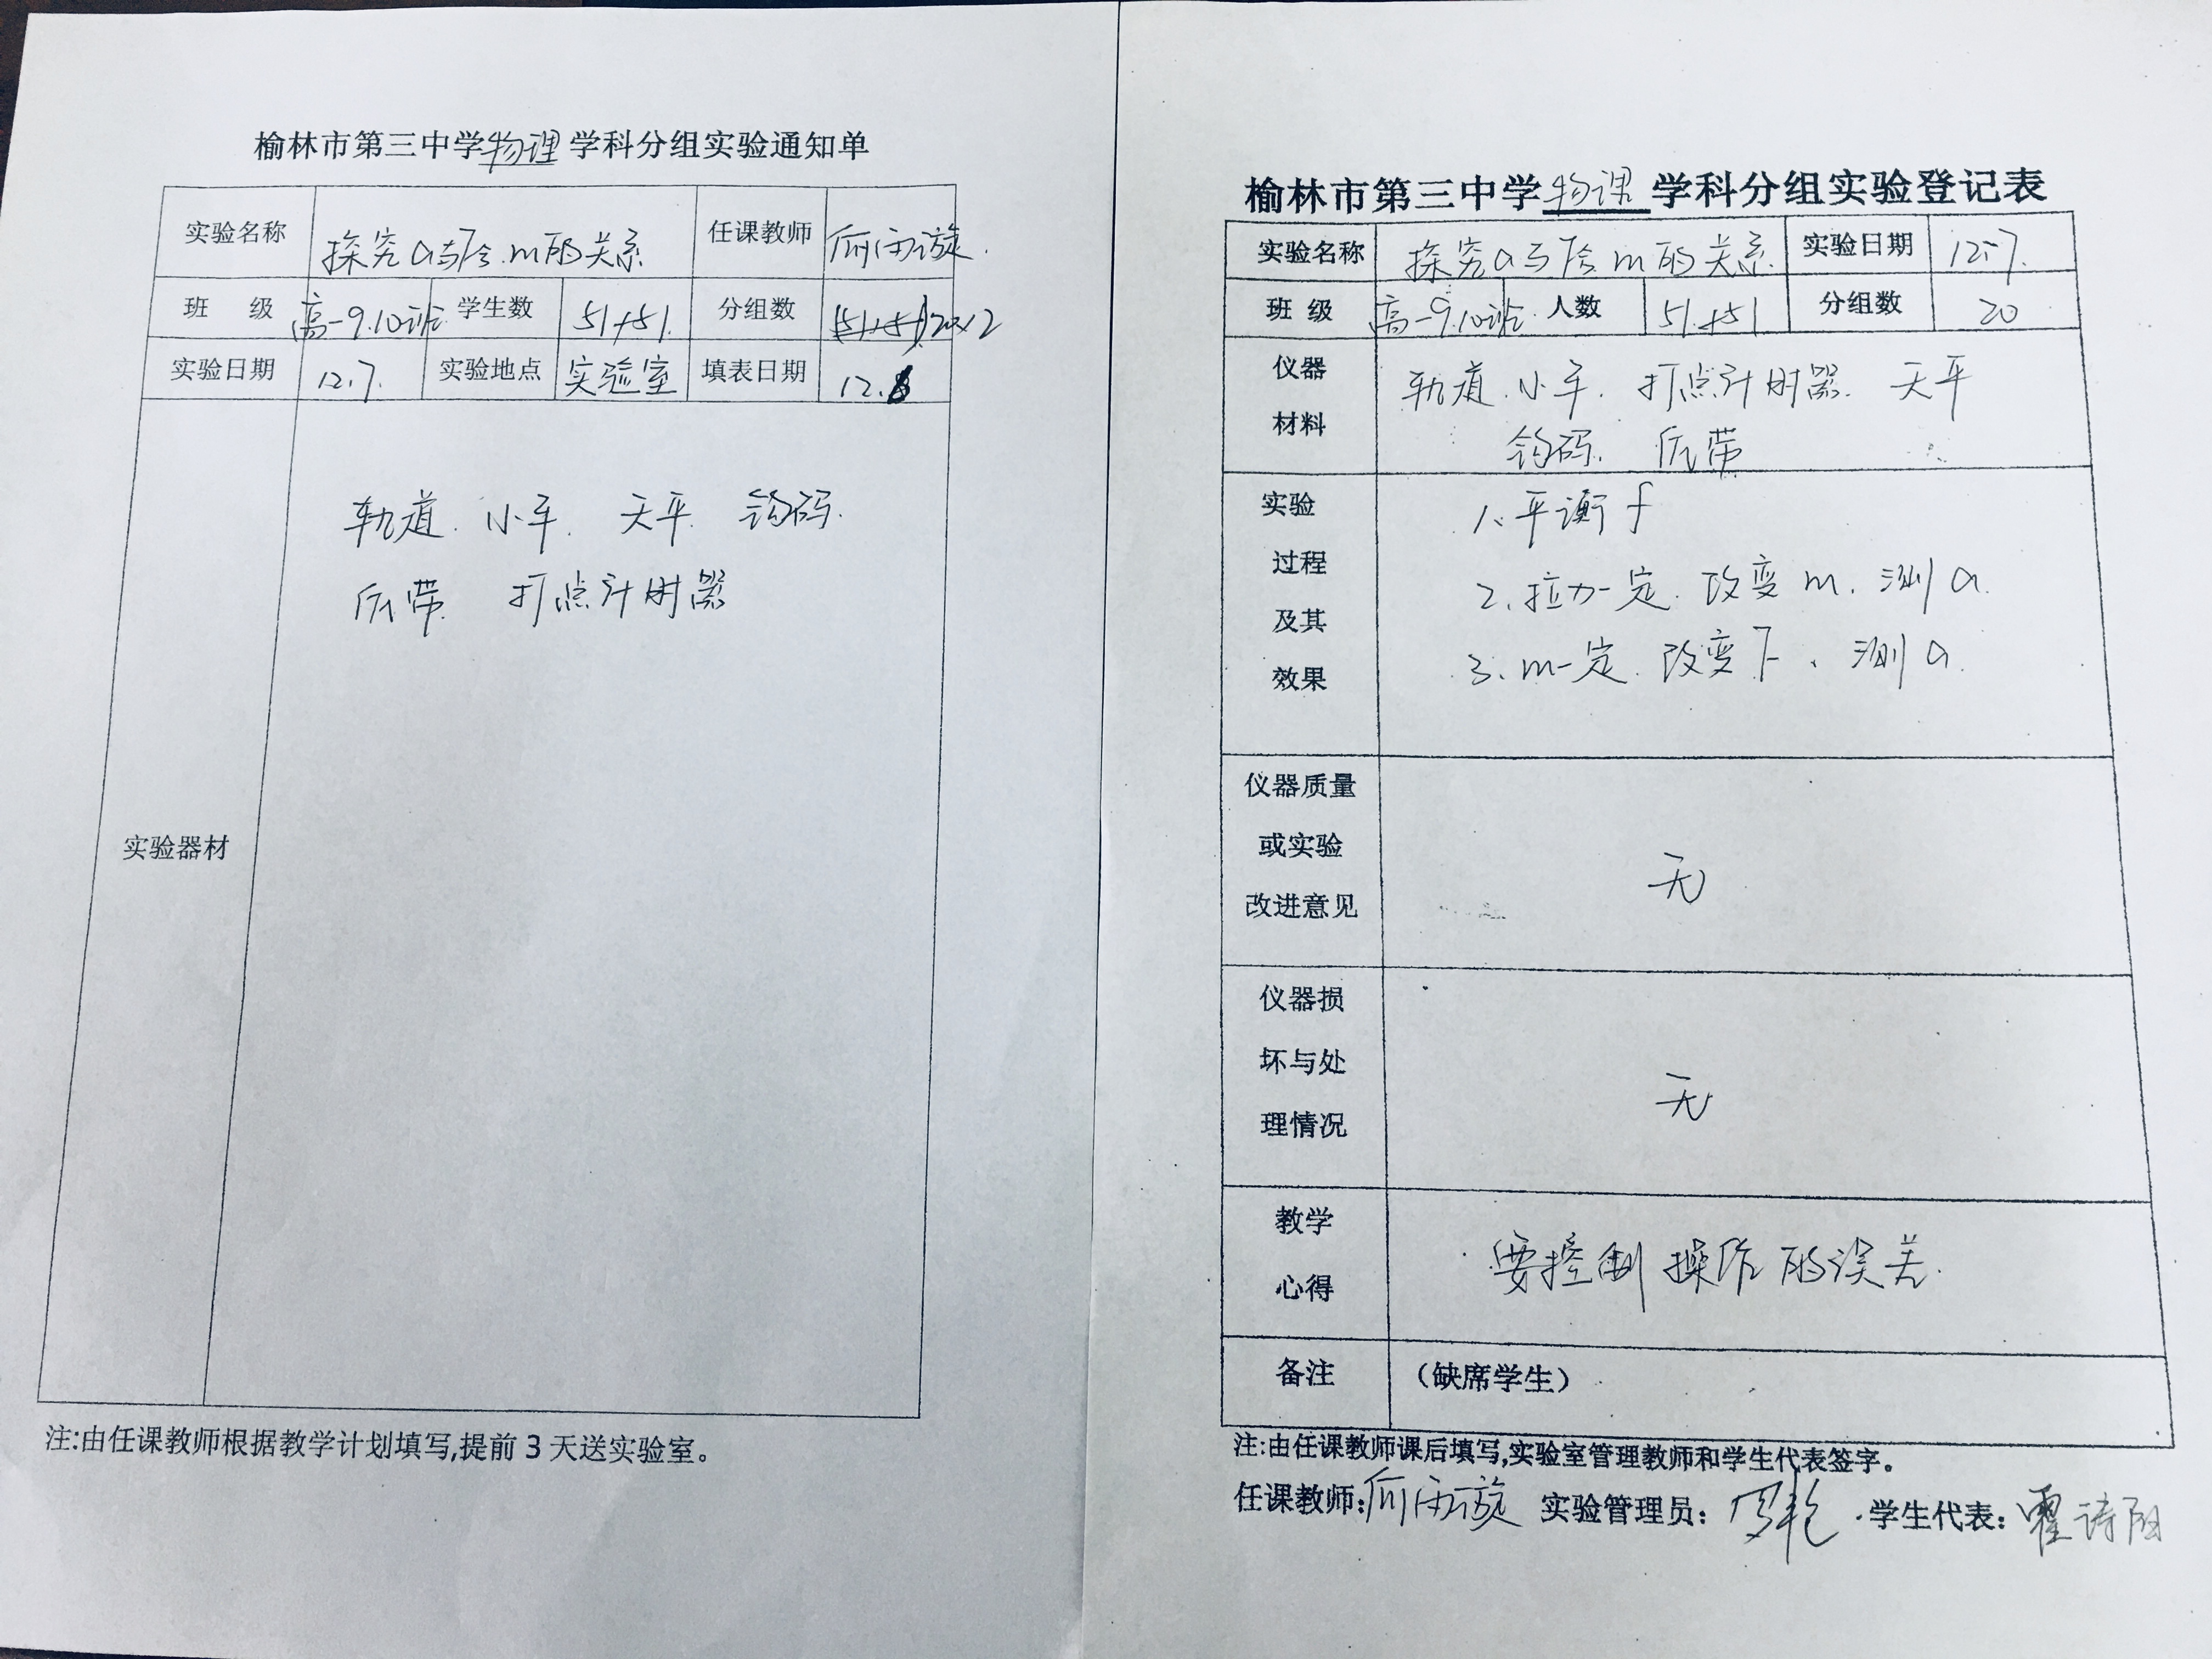 榆林市第三中学物理学科分组实验通知单
实验名称 探究a与F合.m的关系 任课教师
班 级 高一9.10班 学生数 51+51 分组数 20×2
实验日期 12.7. 实验地点 实验室 填表日期 12.6
实验器材
轨道. 小车. 天平. 钩码.
纸带. 打点计时器
注:由任课教师根据教学计划填写,提前 3 天送实验室。
榆林市第三中学物理学科分组实验登记表
实验名称 探究a与F合m的关系. 实验日期 12.7.
班 级 高一9.10班. 人数 51+51 分组数 20
仪器材料
轨道. 小车. 打点计时器. 天平
钩码. 纸带
实验过程及其效果
1、平衡f
2、拉力一定. 改变m. 测a.
3、m一定. 改变F、测a.
仪器质量或实验改进意见
无
仪器损坏与处理情况
无
教学心得
要控制操作的误差.
备注 (缺席学生)
注:由任课教师课后填写,实验室管理教师和学生代表签字。
任课教师: 实验管理员: 学生代表: